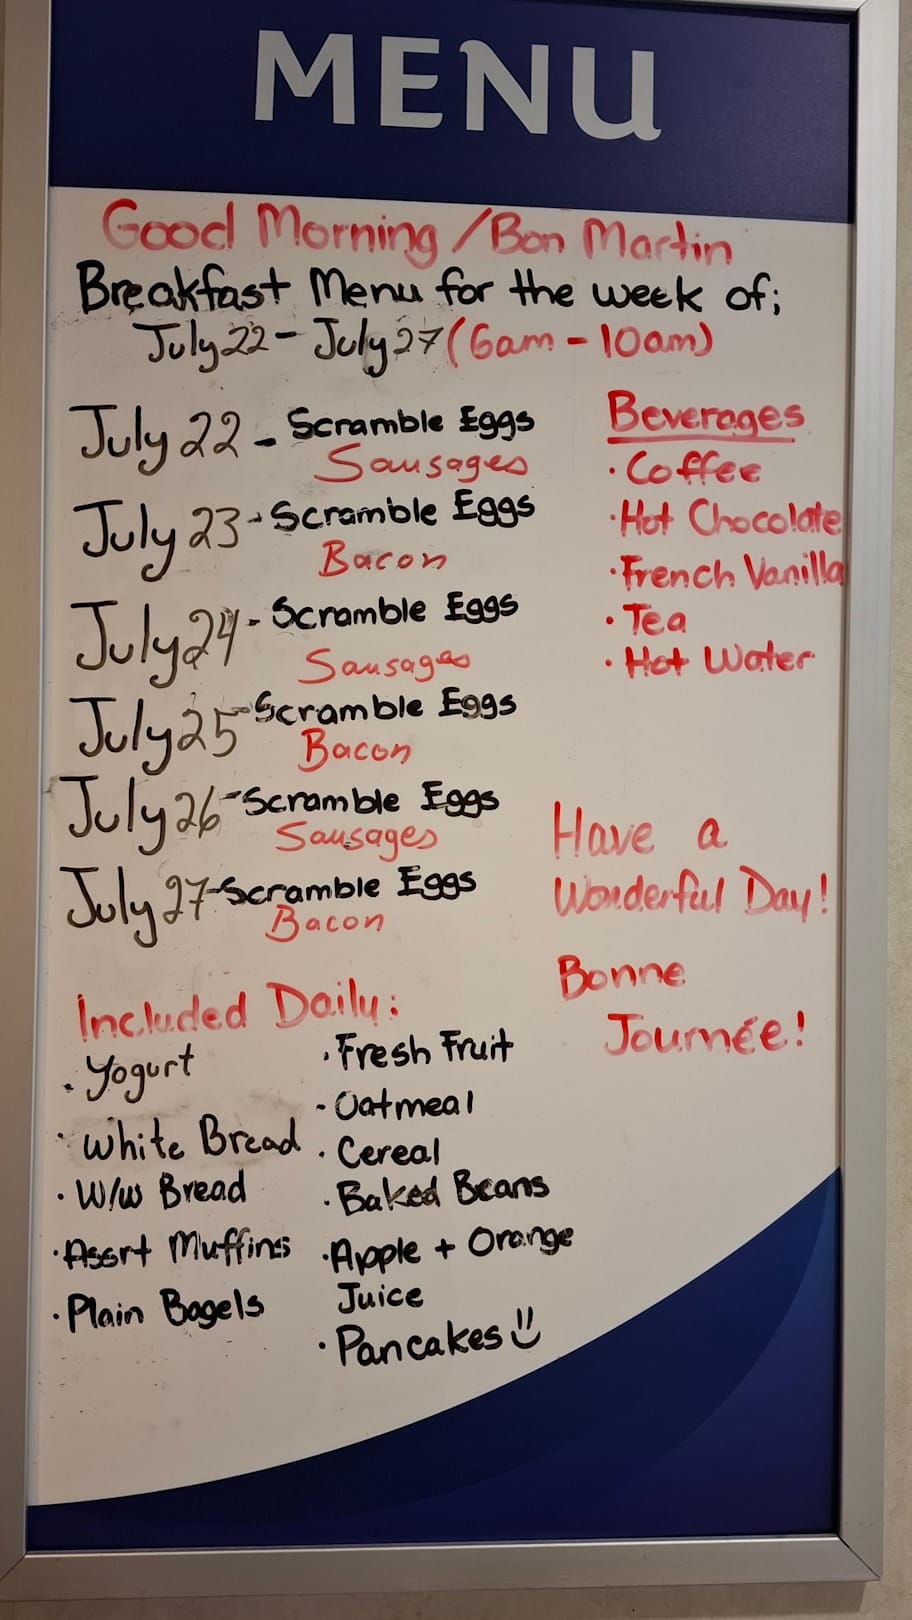 MENU
Good Morning / Bon Martin
Breakfast Menu for the week of;
July 22 - July 27 (6am - 10am)
July 22 - Scramble Eggs
Sausages
July 23 - Scramble Eggs
Bacon
July 24 - Scramble Eggs
Sausages
July 25 - Scramble Eggs
Bacon
July 26 - Scramble Eggs
Sausages
July 27 - Scramble Eggs
Bacon
Beverages
· Coffee
· Hot Chocolate
· French Vanilla
· Tea
· Hot Water
Have a
Wonderful Day!
Bonne
Journée!
Included Daily:
· Yogurt
· White Bread
· W/w Bread
· Assrt Muffins
· Plain Bagels
· Fresh Fruit
- Oatmeal
· Cereal
· Baked Beans
· Apple + Orange
Juice
· Pancakes